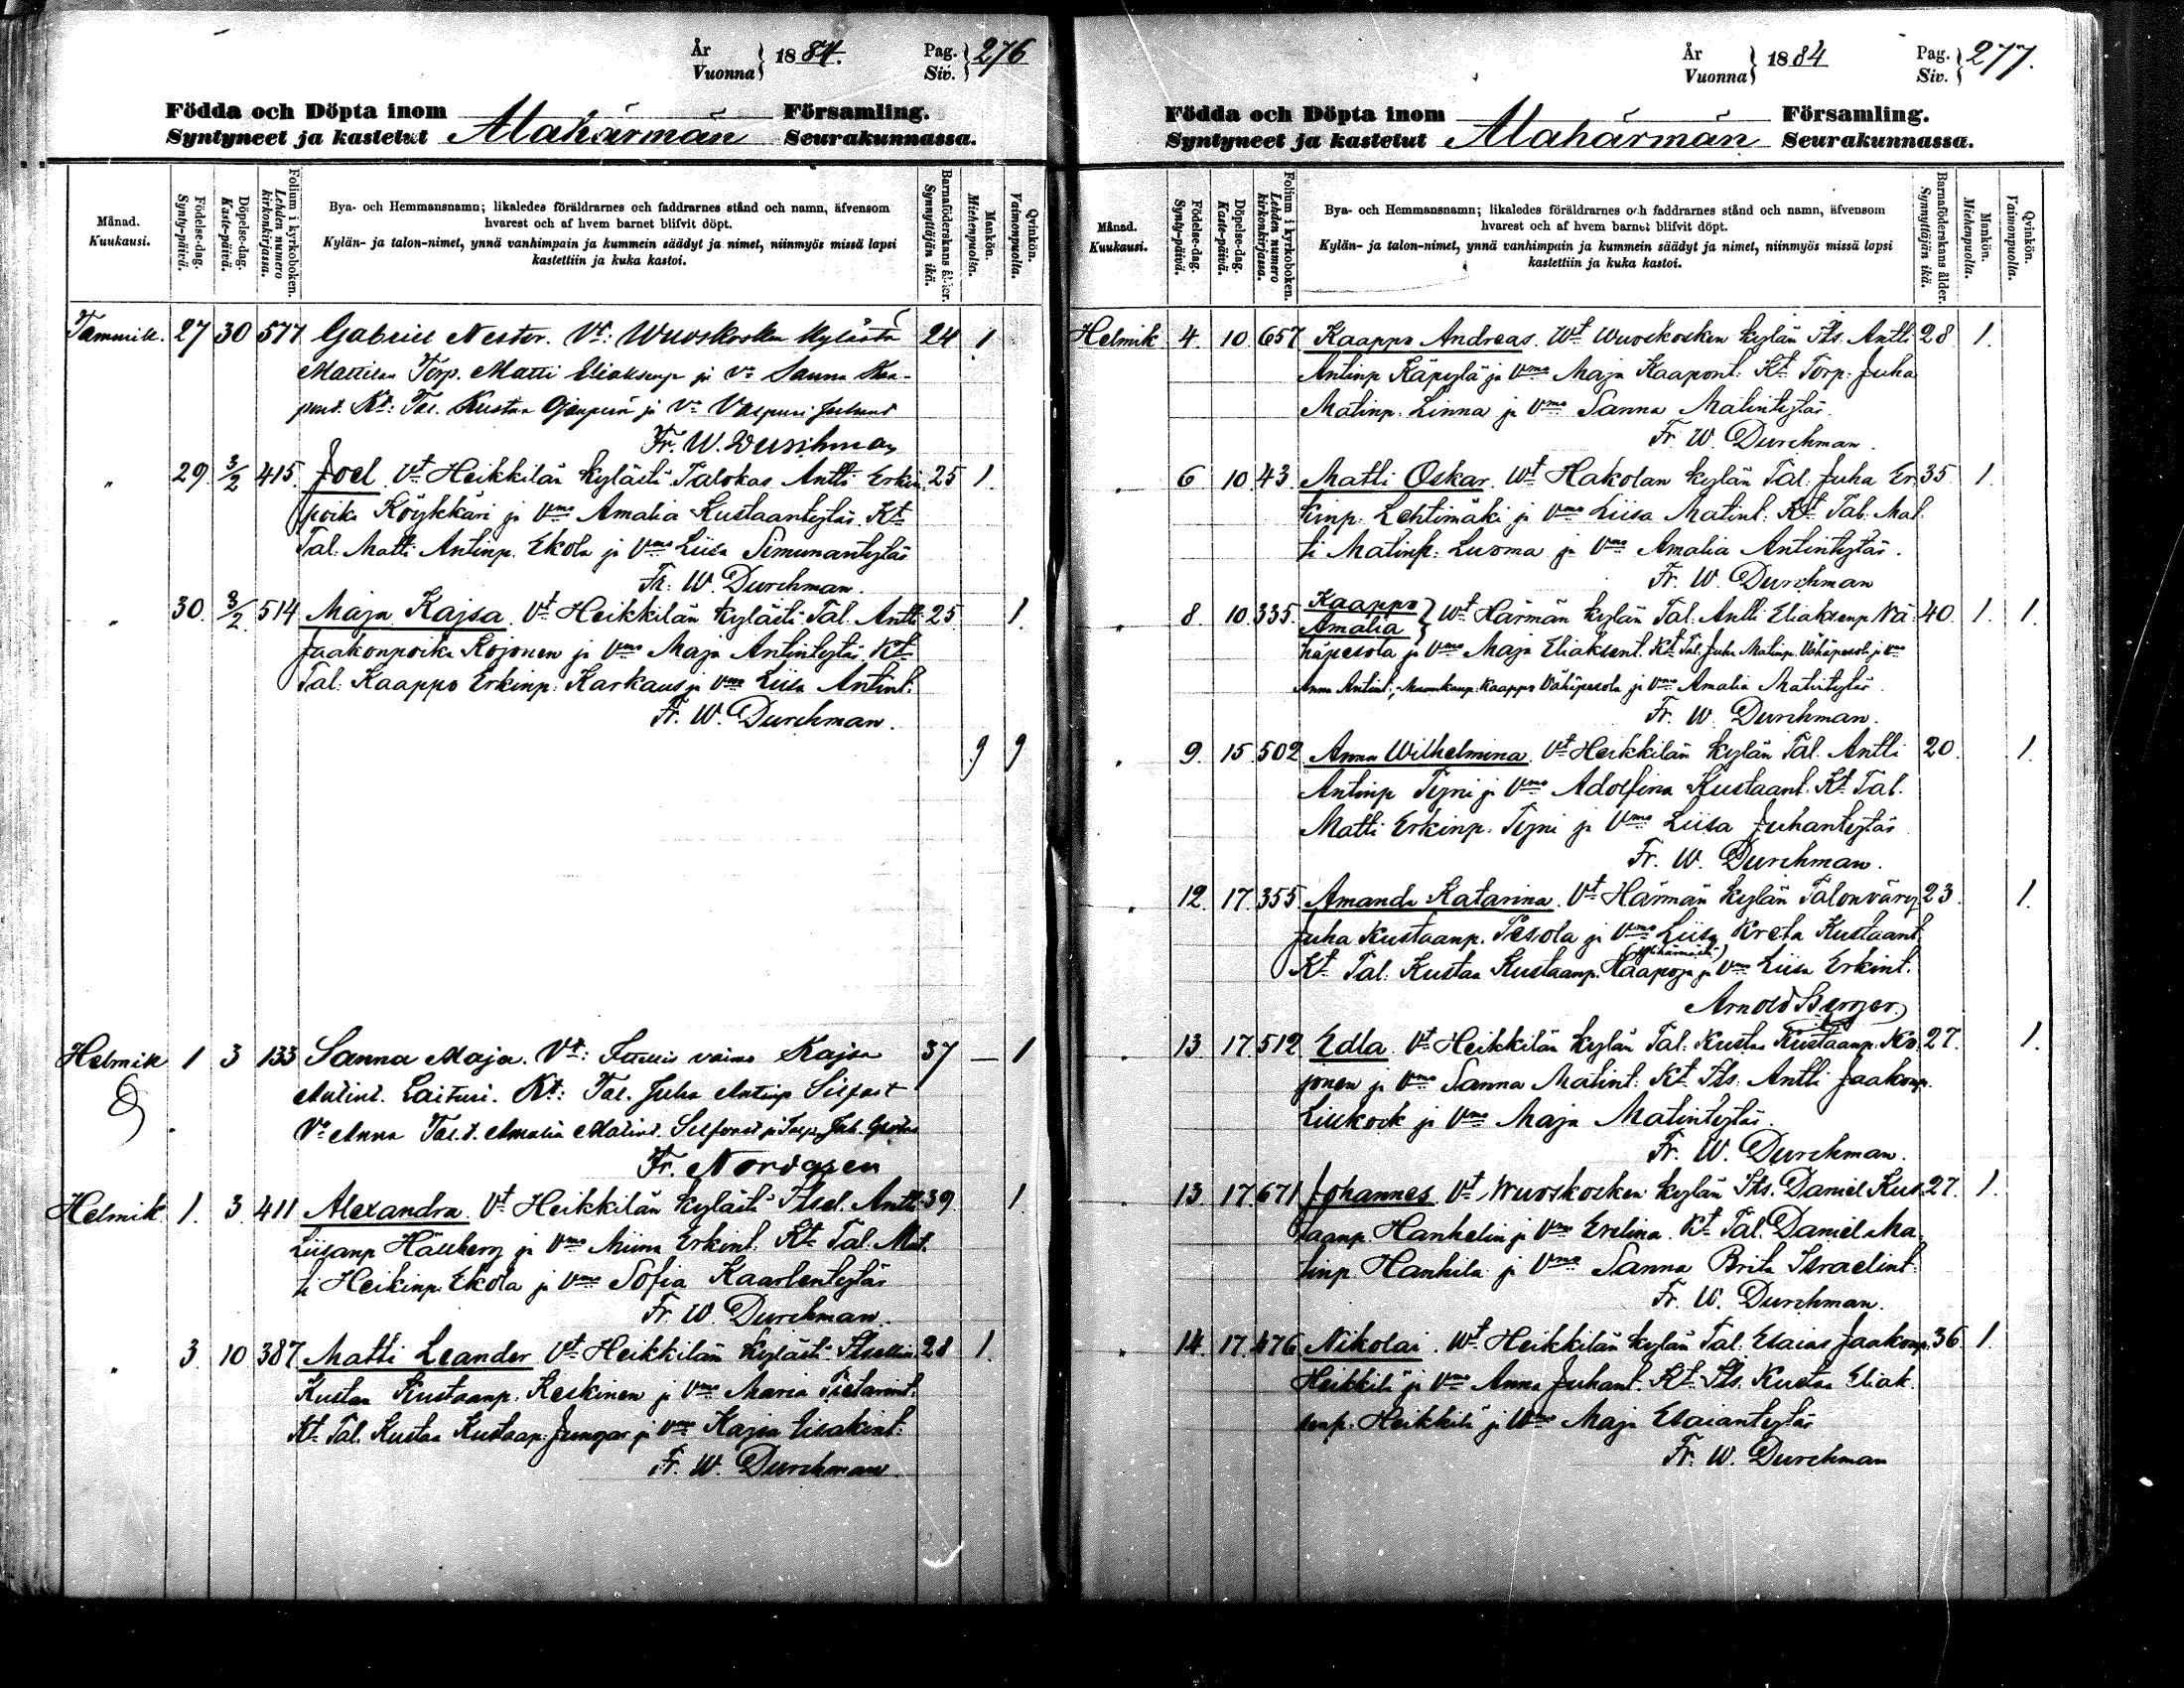 År
Vuonna } 1884. Pag. Siv. } 276
Födda och Döpta inom Församling.
Syntyneet ja kastetut Alahärmän Seurakunnassa.
Månad.
Kuukausi.
Födelse-dag.
Synty-päivä.
Döpelse-dag.
Kaste-päivä.
Folium i kyrkoboken.
Lehden numero
kirkonkirjassa.
Bya- och Hemmansnamn; likaledes föräldrarnes och faddrarnes stånd och namn, äfvensom
hvarest och af hvem barnet blifvit döpt.
Kylän- ja talon-nimet, ynnä vanhimpain ja kummein säädyt ja nimet, niinmyös missä lapsi
kastettiin ja kuka kastoi.
Barnaföderskans ålder.
Synnyttäjän ikä.
Mankön.
Miehenpuolta.
Qvinkön.
Vaimonpuolta.
Tammik. 27 30 577 Gabriel Nestor. Vt: Wuoskosken kylästä 24 1
Mattilan Torp. Matti Eliaksenp ja Vo Sanna Kaa-
pont. Kt: Tal. Kustaa Ojanperä ja Vo Valpuri Juhant
Fr. W. Durchman
" 29. 3/2 415. Joel. Vt Heikkilän kylästä Talokas Antti Erkin 25 1.
poika Köykkäri ja Vmo Amalia Kustaantytär. Kt
Tal: Matti Antinp. Ekola ja Vmo Liisa Simunantytär
Fr: W. Durchman.
" 30. 3/2. 514 Maja Kajsa. Vt Heikkilän kylästä Tal. Antti 25 1.
Jaakonpoika Kojonen ja Vmo Maja Antintytär. Kt
Tal: Kaappo Erkinp: Karkaus ja Vmo Liisa Antint:
Fr. W. Durchman.
9 9
Helmik 1 3 133 Sanna Maja. Vt: vaimo Kajsa 37 — 1
Antint. Laituri. Kt: Tal. Juha Antinp Silfast
Vo Anna Tal.t. Amalia Matint. Silfast ja
Fr. Nordgren
Helmik. 1. 3. 411 Alexandra. Vt Heikkilän kylästä Itsel. Antti 39. 1.
Liisanp Hällberg ja Vmo Miina Erkint. Kt Tal. Mat.
ti Heikinp. Ekola ja Vmo Sofia Kaarlentytär
Fr. W. Durchman.
" 3. 10 387 Matti Leander Vt Heikkilän kylästä Itsellin. 28 1.
Kustaa Kustaanp. Keskinen ja Vmo Maria Pietarint.
Kt. Tal. Kustaa Kustaap. Jungar ja Vmo Kajsa Iisakint:
Fr. W. Durchman
År
Vuonna } 1884 Pag. Siv. } 277.
Födda och Döpta inom Församling.
Syntyneet ja kastetut Alahärmän Seurakunnassa.
Månad.
Kuukausi.
Födelse-dag.
Synty-päivä.
Döpelse-dag.
Kaste-päivä.
Folium i kyrkoboken.
Lehden numero
kirkonkirjassa.
Bya- och Hemmansnamn; likaledes föräldrarnes och faddrarnes stånd och namn, äfvensom
hvarest och af hvem barnet blifvit döpt.
Kylän- ja talon-nimet, ynnä vanhimpain ja kummein säädyt ja nimet, niinmyös missä lapsi
kastettiin ja kuka kastoi.
Barnaföderskans ålder.
Synnyttäjän ikä.
Mankön.
Miehenpuolta.
Qvinkön.
Vaimonpuolta.
Helmik 4. 10. 657 Kaappo Andreas. Wt Wuoskosken kylän Its. Antti 28 1.
Antinp Käpylä ja Vmo Maja Kaapont: Kt. Torp. Juha
Matinp: Linna ja Vmo Sanna Matintytär.
Fr. W. Durchman.
" 6 10. 43. Matti Oskar. Wt Hakolan kylän Tal. Juha Er 35 1.
kinp: Lehtimäki ja Vmo Liisa Matint: Kt Tal: Mat.
ti Matinp: Luoma ja Vmo Amalia Antintytär.
Fr. W. Durchman
" 8 10. 335. Kaappo
Amalia } Wt Härmän kylän Tal. Antti Eliaksenp Vä 40. 1. 1.
häpesola ja Vmo Maja Eliaksent. Kt Tal. Juha Matinp. Vähäpesola ja Vmo
Anna Antint; Kaappo Vähäpesola ja Vmo Amalia Matintytär.
Fr. W. Durchman.
" 9. 15. 502 Anna Wilhelmina. Vt Heikkilän kylän Tal. Antti 20. 1.
Antinp Tyni ja Vmo Adolfina Kustaant. Kt. Tal.
Matti Erkinp: Tyni ja Vmo Liisa Juhantytär
Fr. W. Durchman.
" 12. 17. 355. Amanda Katarina. Vt Härmän kylän Talonväv 23. 1.
Juha Kustaanp. Pesola ja Vmo Liisa Kreta Kustaant.
(Ylihärmästä)
Kt Tal: Kustaa Kustaanp. Haapoja ja Vmo Liisa Erkint.
Arnold Berger.
" 13. 17. 512. Edla. Vt Heikkilän kylän Tal: Kustaa Kustaanp. Ko 27. 1.
jonen ja Vmo Sanna Matint: Kt Its. Antti Jaakonp.
Liukock ja Vmo Maja Matintytär.
Fr. W. Durchman.
" 13. 17. 671 Johannes. Vt Wuoskosken kylän Its. Daniel Kus 27. 1.
taanp. Hanhelin ja Vmo Evelina. Kt Tal. Daniel Ma
tinp. Hanhila ja Vmo Sanna Brita Israelint:
Fr. W. Durchman.
" 14. 17. 476 Nikolai. Wt Heikkilän kylän Tal. Esaias Jaakonp. 36. 1.
Heikkilä ja Vmo Anna Juhant. Kt. Its. Kustaa Eliak.
senp. Heikkilä ja Vmo Maja Esaiantytär
Fr. W. Durchman